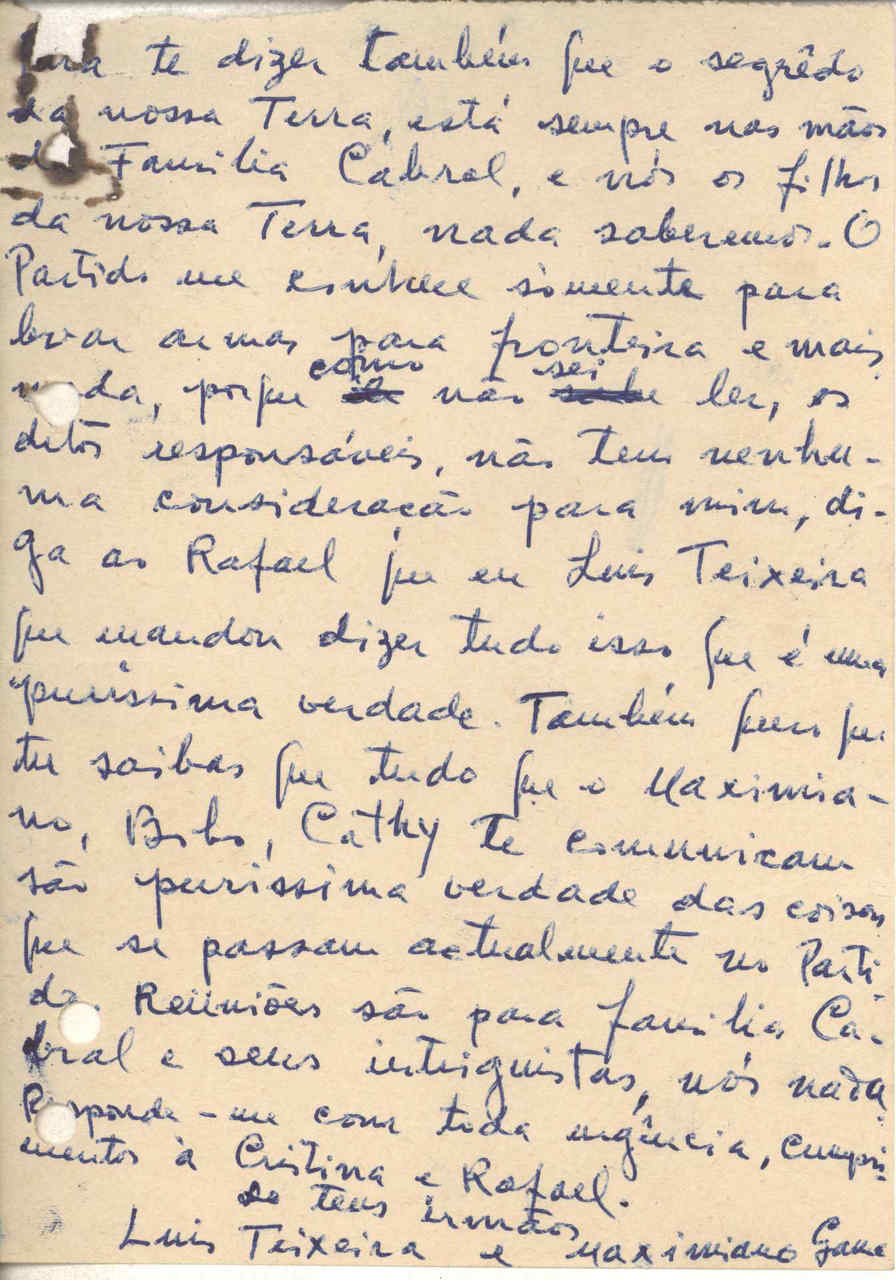 para te dizer também que o segrêdo
da nossa Terra, está sempre nas mãos
da Familia Cabral, e nós os filhos
da nossa Terra, nada saberemos. O
Partido me conhece sòmente para
levar armas para fronteira e mais
nada, porque como não sei ler, os
ditos responsáveis, não tem nenhu-
ma consideração para mim, di-
ga ao Rafael que eu Luis Teixeira
que mandou dizer tudo isso que é uma
puríssima verdade. Também quero que
tu saibas que tudo que o Maximia-
no, Bobo, Cathy te comunicam
são puríssima verdade das coisas
que se passam actualmente no Parti-
do. Reüniões são para familia Ca-
bral e seus intriguistas, nós nada.
Responde-me com toda urgência, cumpri-
mentos à Cristina e Rafael.
teus irmãos
Luis Teixeira e Maximiano Gama